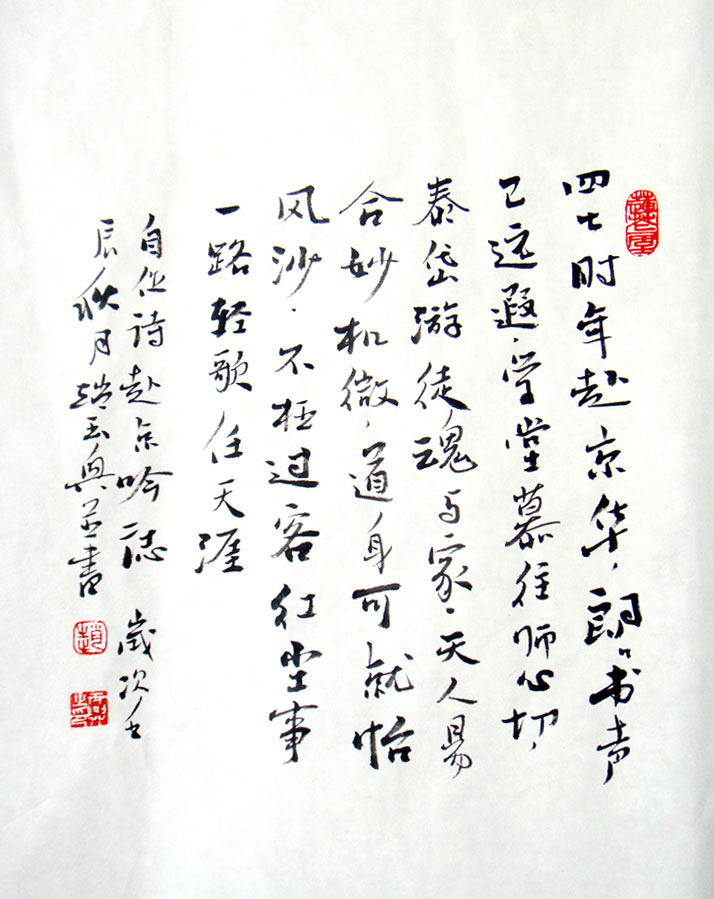 四七时年赴京华，朗々书声
已远遐，堂堂慕往师心切，
泰岱游徒魂与家，天人易
合妙机微，道身可就怡
风沙，不枉过客红尘事
一路轻歌任天涯
自作诗赴京吟一志 岁次壬
辰秋月赵玉兴并书